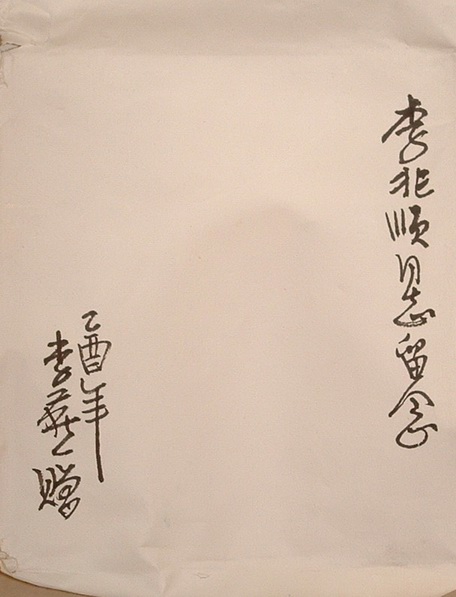 李兆顺同志留念
乙酉年
李 赠